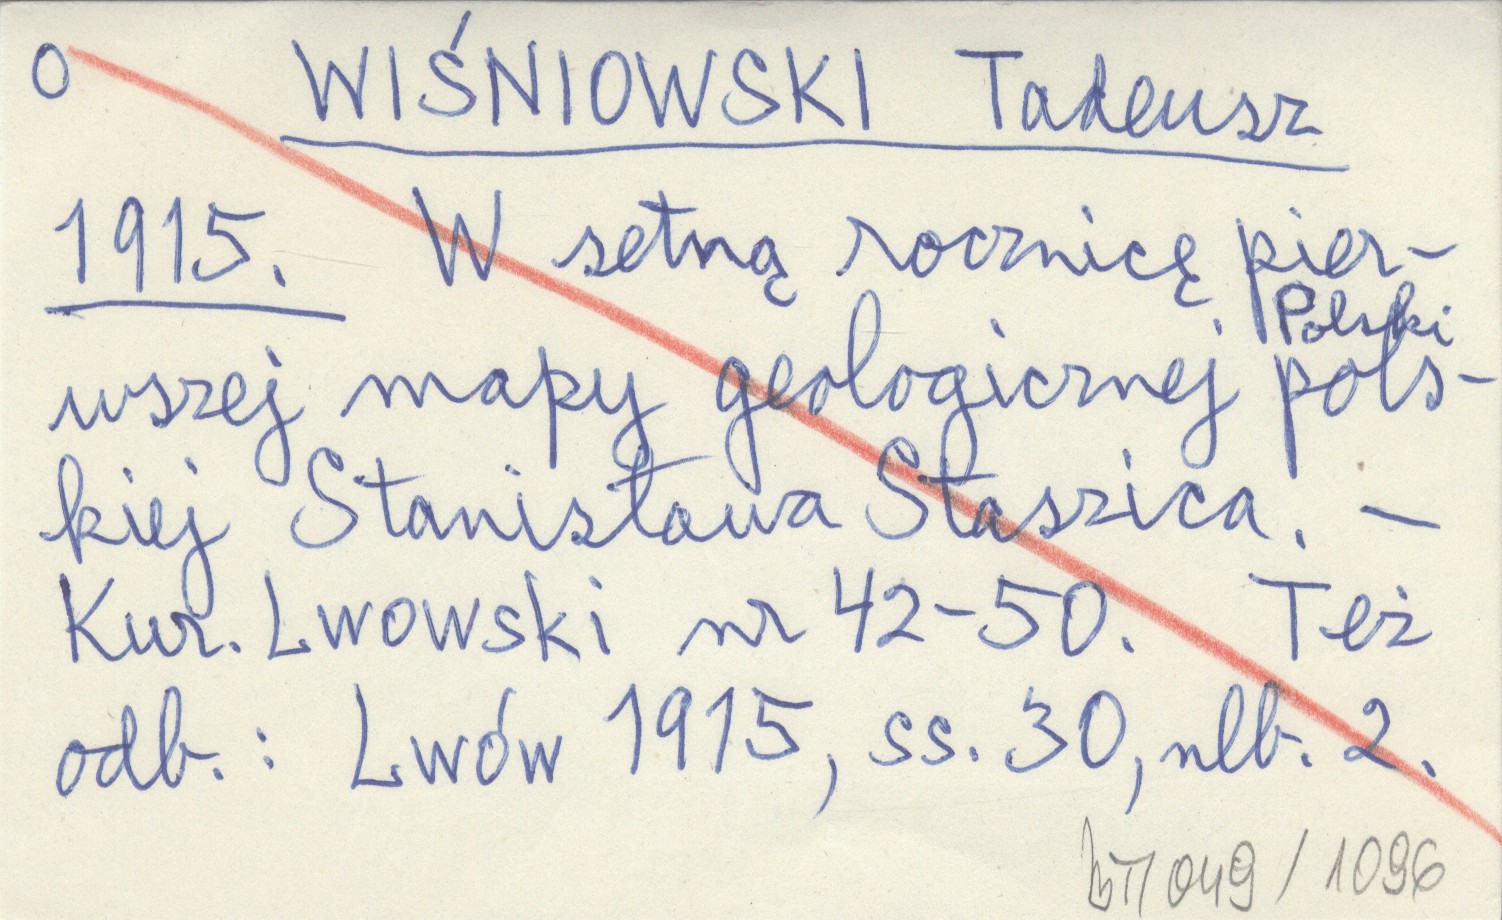 O WIŚNIOWSKI Tadeusz
1915. W setną rocznicę pier-
Polski
wszej mapy geologicznej pols-
kiej Stanisława Staszica. —
Kur. Lwowski nr 42-50. Też
odb.: Lwów 1915, ss. 30, nlb. 2.
049/1096